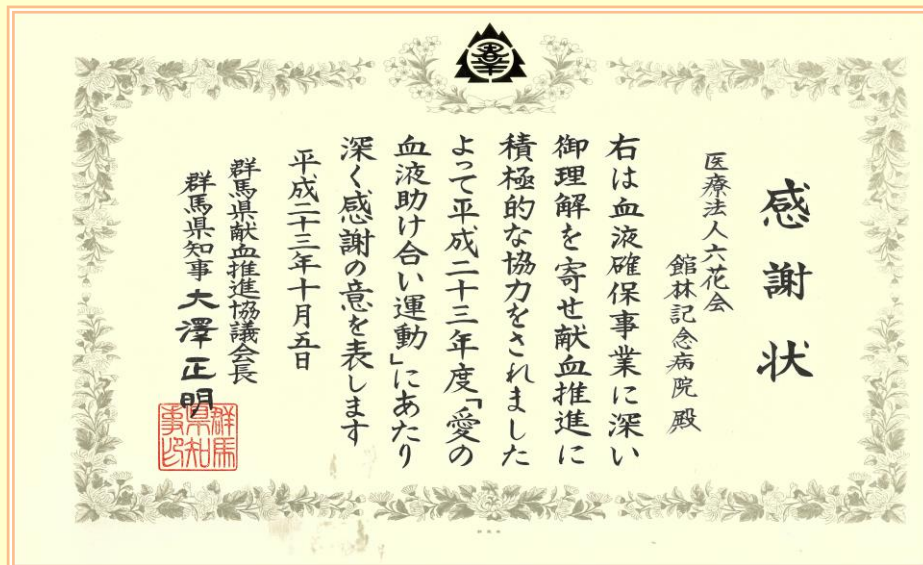 感謝状
医療法人六花会
館林記念病院 殿
右は血液確保事業に深い
御理解を寄せ献血推進に
積極的な協力をされました
よって平成二十三年度「愛の
血液助け合い運動」にあたり
深く感謝の意を表します
平成二十三年十月五日
群馬県献血推進協議会長
群馬県知事 大澤正明
群馬
県知
事印